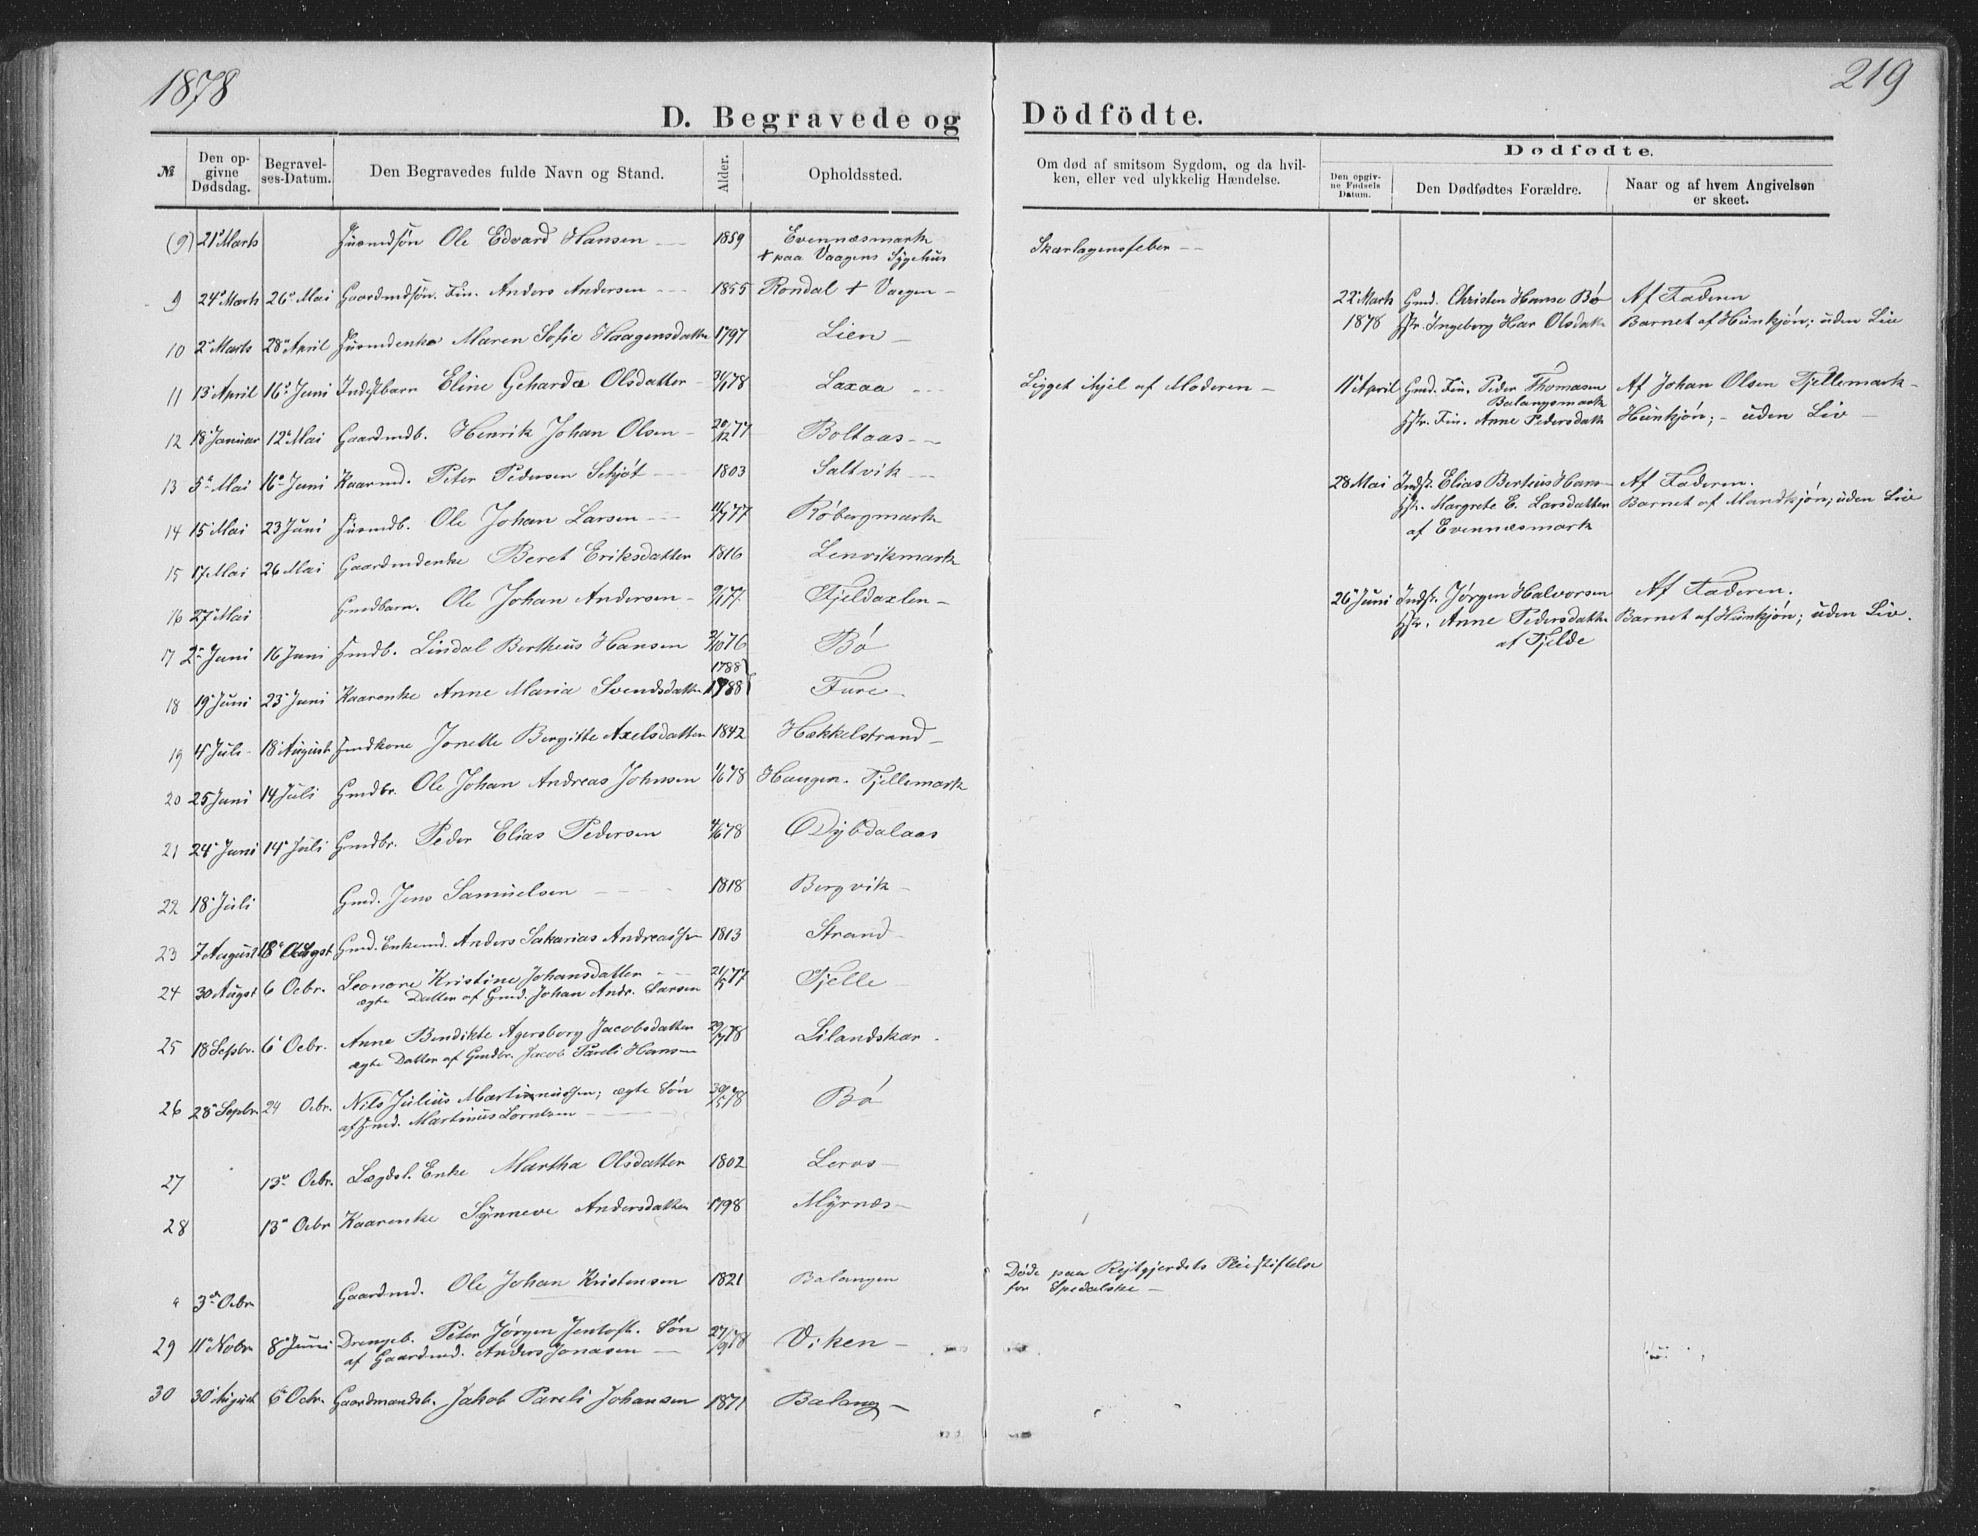 1878
219
D. Begravede og Dödfödte.
№
Den opgivne Dødsdag.
Begravelses-Datum.
Den Begravedes fulde Navn og Stand.
Alder.
Opholdssted.
Om død af smitsom Sygdom, og da hvilken, eller ved ulykkelig Hændelse.
Dødfødte.
Den opgivne Fødsels Datum.
Den Dødfødtes Forældre.
Naar og af hvem Angivelsen er skeet.
(9) 21 Marts Huusmdsøn Ole Edvard Hansen 1859 Evennæsmark Skarlagensfeber
+ paa Vaagens Sygehus
9 24 Marts 26 Mai Gaardmdsøn. Fin. Anders Andersen 1855 Rondal + Vaagen 22 Marts Gmd. Christen Hansen Bø Af Faderen
1878 Hstr. Ingeborg Olsdatter Barnet af Hunkjøn; uden Liv
10 2 Marts 28 April Huusmdenke Maren Sofie Haagensdatter 1797 Lien
11 13 April 16 Juni Indstbarn Eline Geharda Olsdatter 78 Laxaa Ligget ihjel af Moderen 11 April Gmd. Fin. Peder Thomasen Af Johan Olsen Fjellemark
Balangsmark
Hstr. Fin. Anne Pedersdatter Hunkjøn; uden Liv
12 18 Januar 12 Mai Gaardmdb. Henrik Johan Olsen 20/12 77 Boltaas
13 5 Mai 16 Juni Kaarmd. Peter Pedersen Schjøt 1803 Saltvik 28 Mai Indst. Elias Berteus Hans Af Faderen.
Hstr. Margrete E. Larsdatter Barnet af Mandkjøn; uden Liv
af Evennæsmark
14 15 Mai 23 Juni Huusmdb. Ole Johan Larsen 77 Røbergmark
15 17 Mai 26 Mai Gaardmdenke Beret Eriksdatter 1816 Lenvikmark
16 27 Mai Gmdbarn. Ole Johan Andersen 77 Fjeldaxlen 26 Juni Indst. Jørgen Halvorsen Af Faderen.
Hstr. Anne Pedersdatter Barnet af Hunkjøn; uden Liv.
af Fjelde
17 2 Juni 16 Juni Gmdb. Lindal Bertheus Hansen 2/10 76 Bø
1788
18 19 Juni 23 Juni Kaarenke Anne Maria Svendsdatter 1788 Fure
19 4 Juli 18 August Gmdkone Jonette Bergitte Axelsdatter 1842 Hækkelstrand
20 25 Juni 14 Juli Gmdbr. Ole Johan Andreas Johnsen 1/6 78 Haugen. Fjellemark
21 24 Juni 14 Juli Gmdbr. Peder Elias Pedersen 4/6 78 Dybdalaas
22 18 Juli Gmd. Jens Samuelsen 1818 Bergvik
23 7 August 18 Augst Gmd. Enkemd. Anders Sakarias Andreassen 1813 Strand
24 30 Augst 6 Ocbr. Leonore Kristine Johansdatter 21/5 77 Fjelle
ægte Datter af Gmd. Johan Andr. Larsen
25 18 Sepbr. 6 Ocbr. Anne Bendikte Agersborg Jacobsdatter 29/7 78 Lilandskar
ægte Datter af Gmdbr. Jacob Pareli Hansen
26 28 Sepbr. 24 Ocbr. Nils Julius Martinussen; ægte Søn 30/5 78 Bø
af Gmd. Martinus Lorntsen
27 13 Ocbr. Lægdsl. Enke Martha Olsdatter 1802 Leros
28 13 Ocbr Kaarenke Synneve Andersdatter 1798 Myrnæs
3 Ocbr Gaardmd. Ole Johan Kristensen 1821 Balangen Døde paa Rejtgjerdets Pleistiftelse
for Spedalske
29 11 Nobr 8 Juni Drengeb. Peter Jørgen Jentoft. Søn 27/9 78 Viken
af Gaardmd. Anders Jonasen
30 30 August 6 Ocbr. Gaardmandsb. Jakob Pareli Johansen 1871 Balang